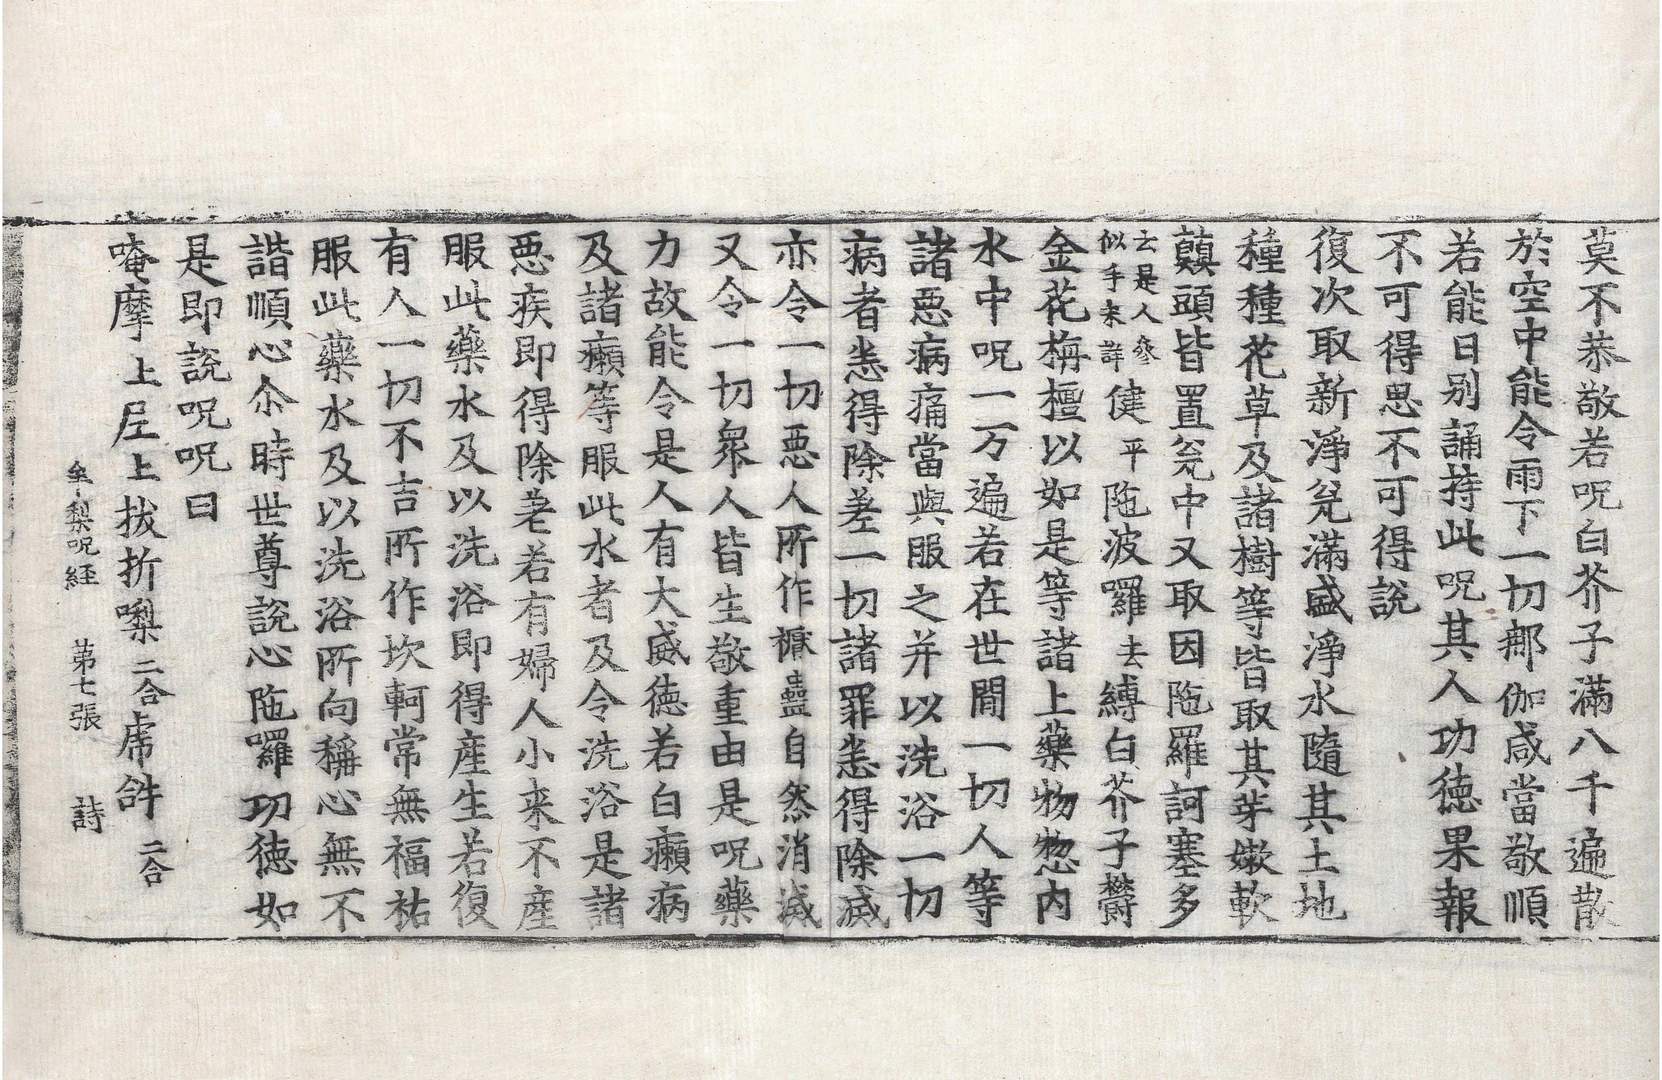 莫不恭敬若呪白芥子滿八千遍散
於空中能令雨下一切那伽咸當敬順
若能日别誦持此呪其人功徳果報
不可得思不可得説
復次取新淨瓮滿盛淨水隨其土地
種種花草及諸樹等皆取其芽嫩軟
蘂頭皆置瓮中又取因陁羅訶塞多
去是人參
似手未詳
健平陁波囉去縛白芥子欝
金花栴檀以如是等諸上藥物惣内
水中呪一万遍若在世間一切人等
諸惡病痛當與服之并以洗浴一切
病者悉得除差一切諸罪悉得除滅
亦令一切惡人所作𧝬蠱自然消滅
又令一切衆人皆生敬重由是呪藥
力故能令是人有大威徳若白癩病
及諸癩等服此水者及令洗浴是諸
惡疾即得除若有婦人小来不産
服此藥水及以洗浴即得産生若復
有人一切不吉所作坎軻常無福祐
服此藥水及以洗浴所向稱心無不
諧順心尒時世尊説心陁囉功徳如
是即説呪呪曰
唵摩上𡱝上拔折㘑二合虎𤙖二合
牟梨呪経　第七張　詩